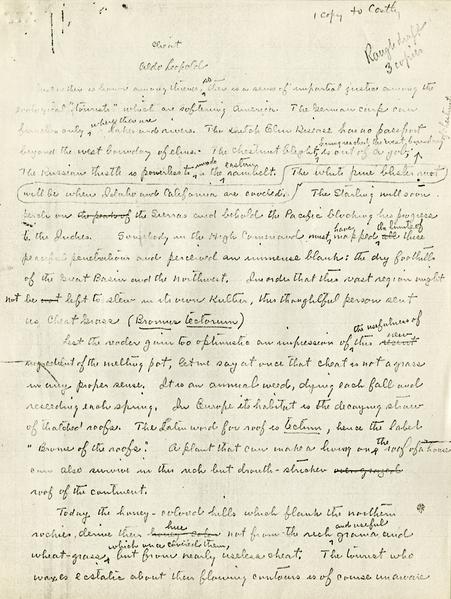 1 copy to
Rough draft
3 copies
Cheat
Aldo Leopold
Just as there is honor among thieves, so there is a sense of impartial justice among the
zoological "tourists" which are softening America. The German carp can
only where there are lakes and rivers. The Dutch Elm Disease has no passport
beyond the west boundary of elms. The Chestnut Blight, is out of a job.
The Russian thistle is powerless to invade the eastern rainbelt. (The white pine blister rust
will be when Idaho and California are covered.) The Starling will soon
perch on the peaks of the Sierras and behold the Pacific blocking his progress
to the Indies. Somebody in the High Command must have mapped the limits of all these
peaceful penetrations and perceived an immense blank: the dry foothills
of the Great Basin and the Northwest. In order that this vast region might
not be not left to stew in its own Kultur, this thoughtful person sent
us Cheat Grass (Bromus tectorum)
Lest the reader gain too optimistic an impression of the usefulness of this new recent
ingredient of the melting pot, let me say at once that cheat is not a grass
in any proper sense. It is an annual weed, dying each fall and
reseeding each spring. In Europe its habitat is the decaying straw
of thatched roofs. The Latin word for roof is tectum, hence the label
"Brome of the roofs". A plant that can make a living on the roof of a house
can also survive in this rich but drouth-stricken overgrazed
roof of the continent.
Today the honey-colored hills which flank the northern
rockies derive their honey color hue not from the rich and useful grama and
wheat-grass which once covered them, but from nearly useless cheat. The tourist who
waxes ecstatic about their flowing contours is of course unaware